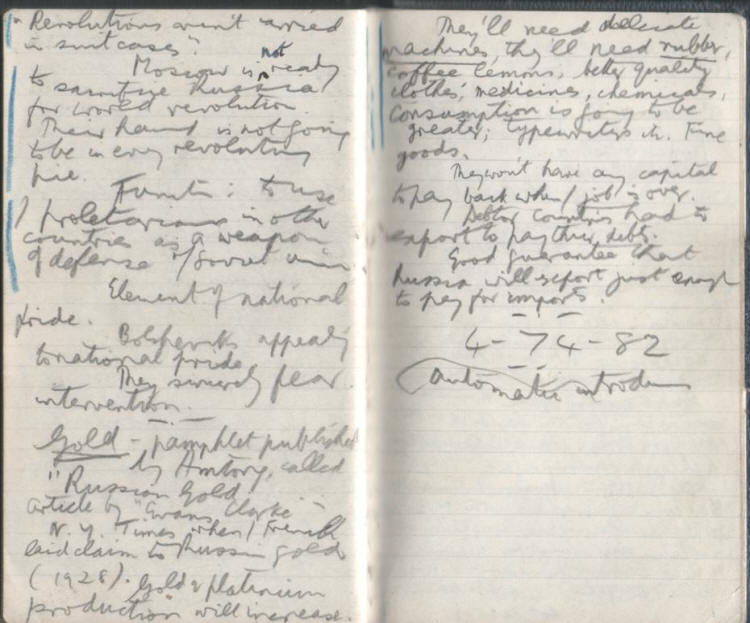 "Revolutions aren't carried
in suitcases"
Moscow is not ready
to sacrifice Russia
for world revolution.
Their hand is not going
to be in every revolutionary
pie.
to use
/ proletarians in other
countries as a weapon
of defense of / Soviet Union
Element of national
pride.
Bolsheviks appeal
to national pride
They sincerely fear
intervention.
Gold - pamphlet published
by Amtorg, called
"Russian Gold"
article by "Evans Clarke"
N.Y. Times when / French
laid claim to Russian gold
(1928). Gold & platinum
production will increase.
They'll need delicate
machines, they'll need rubber,
coffee lemons, better quality
clothes, medicines, chemicals,
consumption is going to be
greater; typewriters etc. Fine
goods.
They won't have any capital
to pay back when / job is over.
Debtor countries had to
export to pay their debts.
Good guarantee that
Russia will export just enough
to pay for imports.
4-74-82
Automatic